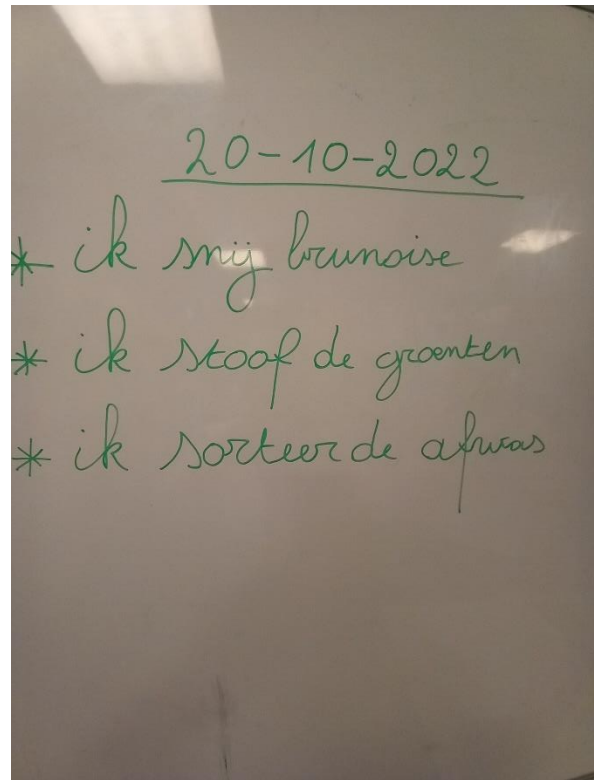 20-10-2022
* ik snij brunoise
* ik stoof de groenten
* ik sorteer de afwas